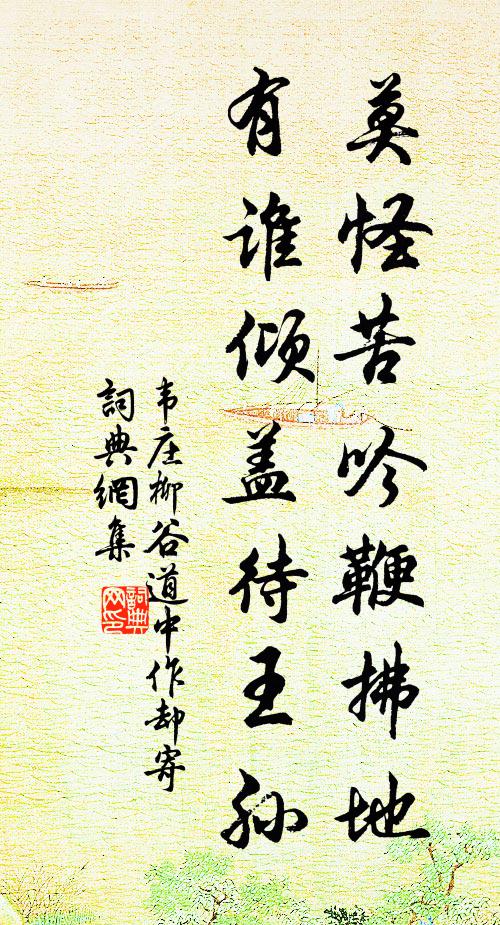 莫怪苦吟鞭拂地
有谁倾盖待王孙
韦庄柳谷道中作却寄
詞典網集
詞典
网印